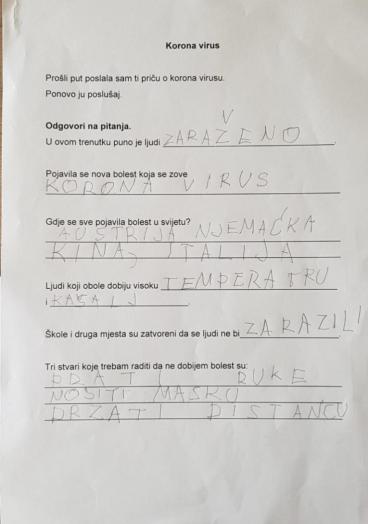 Korona virus
Prošli put poslala sam ti priču o korona virusu.
Ponovo ju poslušaj.
Odgovori na pitanja.
U ovom trenutku puno je ljudi ZARAŽENO.
Pojavila se nova bolest koja se zove
KORONA VIRUS
Gdje se sve pojavila bolest u svijetu?
AUSTRIJA NJEMAČKA
KINA, ITALIJA
Ljudi koji obole dobiju visoku TEMPERATRU
i KAŠALJ.
Škole i druga mjesta su zatvoreni da se ljudi ne bi ZARAZILI
Tri stvari koje trebam raditi da ne dobijem bolest su:
PRATI RUKE
NOSITI MASKU
DRZATI DISTANCU